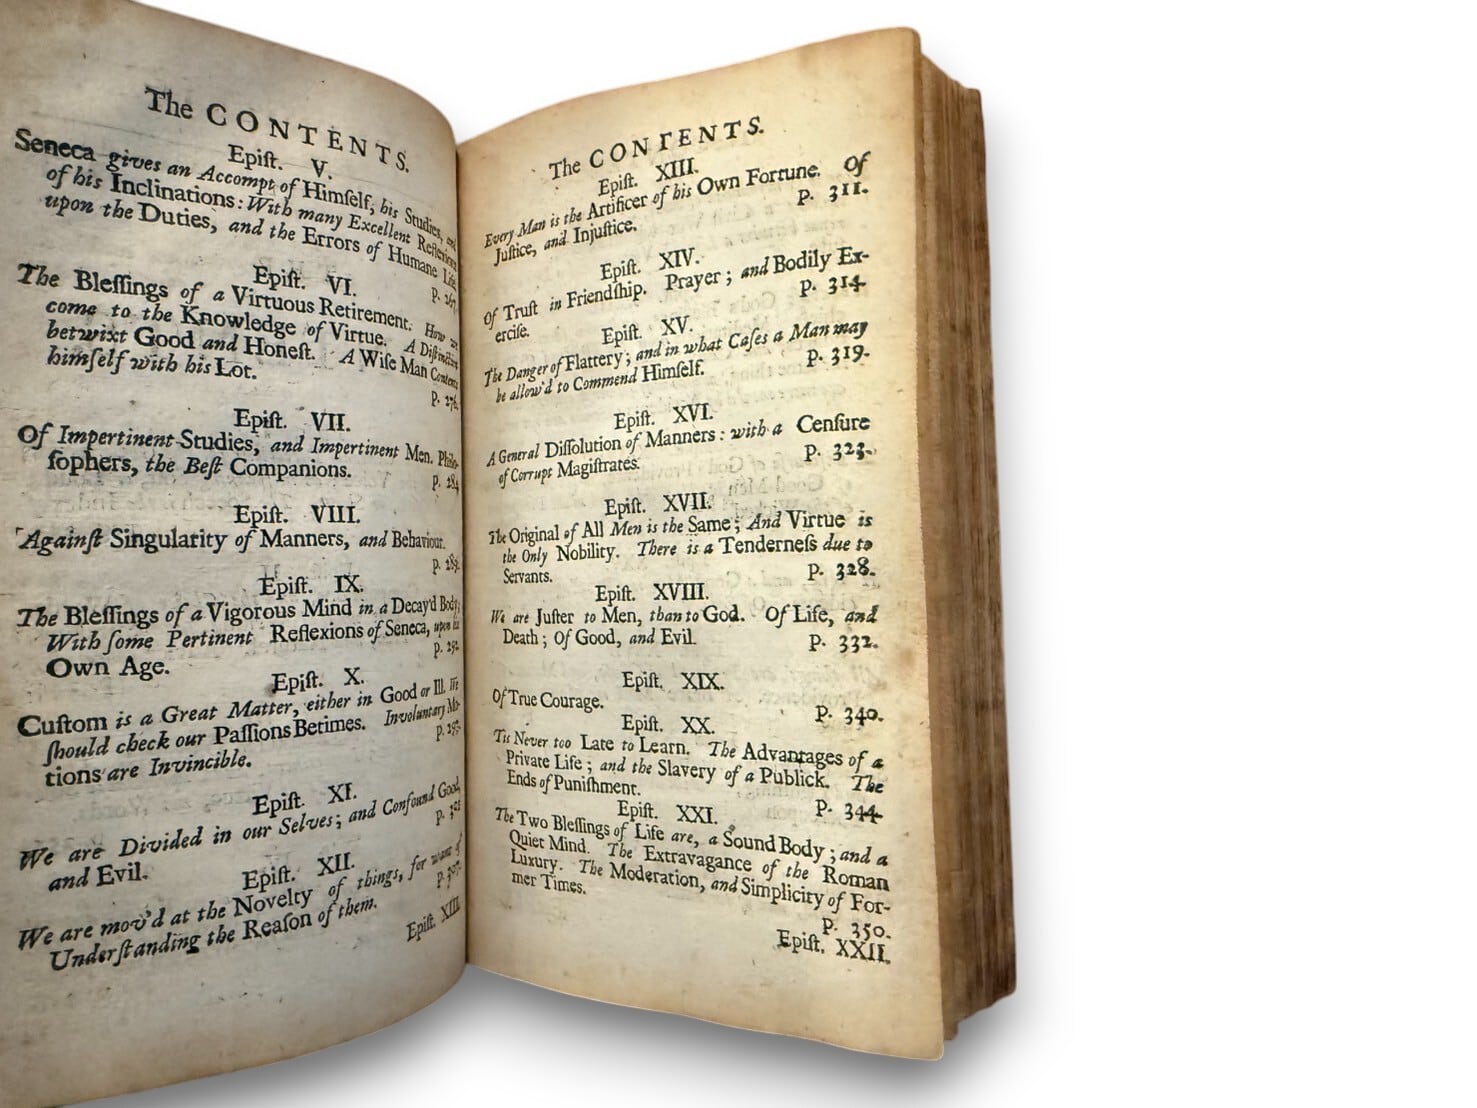 The CONTENTS.
Epiſt. V.
Seneca gives an Accompt of Himſelf, his Studies, and
of his Inclinations: With many Excellent Reflexions
upon the Duties, and the Errors of Humane Life.
p. 267.
Epiſt. VI.
The Bleſſings of a Virtuous Retirement. How we
come to the Knowledge of Virtue. A Diſtinction
betwixt Good and Honeſt. A Wiſe Man Contents
himſelf with his Lot.
p. 276.
Epiſt. VII.
Of Impertinent Studies, and Impertinent Men. Philo-
ſophers, the Beſt Companions.
p. 284.
Epiſt. VIII.
Againſt Singularity of Manners, and Behaviour.
p. 289.
Epiſt. IX.
The Bleſſings of a Vigorous Mind in a Decay'd Body;
With ſome Pertinent Reflexions of Seneca, upon his
Own Age.
p. 292.
Epiſt. X.
Cuſtom is a Great Matter, either in Good or Ill. We
ſhould check our Paſſions Betimes. Involuntary Mo-
tions are Invincible.
p. 297.
Epiſt. XI.
We are Divided in our Selves; and Confound Good,
and Evil.
p.
Epiſt. XII.
We are mov'd at the Novelty of things, for want of
Underſtanding the Reaſon of them.
p. 307.
Epiſt. XIII.
The CONTENTS.
Epiſt. XIII.
Every Man is the Artificer of his Own Fortune. Of
Juſtice, and Injuſtice.
p. 311.
Epiſt. XIV.
Of Truſt in Friendſhip. Prayer; and Bodily Ex-
erciſe.
p. 314.
Epiſt. XV.
The Danger of Flattery; and in what Caſes a Man may
be allow'd to Commend Himſelf.
p. 319.
Epiſt. XVI.
A General Diſſolution of Manners: with a Cenſure
of Corrupt Magiſtrates.
p. 323.
Epiſt. XVII.
The Original of All Men is the Same; And Virtue is
the Only Nobility. There is a Tenderneſs due to
Servants.
p. 328.
Epiſt. XVIII.
We are Juſter to Men, than to God. Of Life, and
Death; Of Good, and Evil.
p. 332.
Epiſt. XIX.
Of True Courage.
p. 340.
Epiſt. XX.
Tis Never too Late to Learn. The Advantages of a
Private Life; and the Slavery of a Publick. The
Ends of Puniſhment.
p. 344.
Epiſt. XXI.
The Two Bleſſings of Life are, a Sound Body; and a
Quiet Mind. The Extravagance of the Roman
Luxury. The Moderation, and Simplicity of For-
mer Times.
p. 350.
Epiſt. XXII.